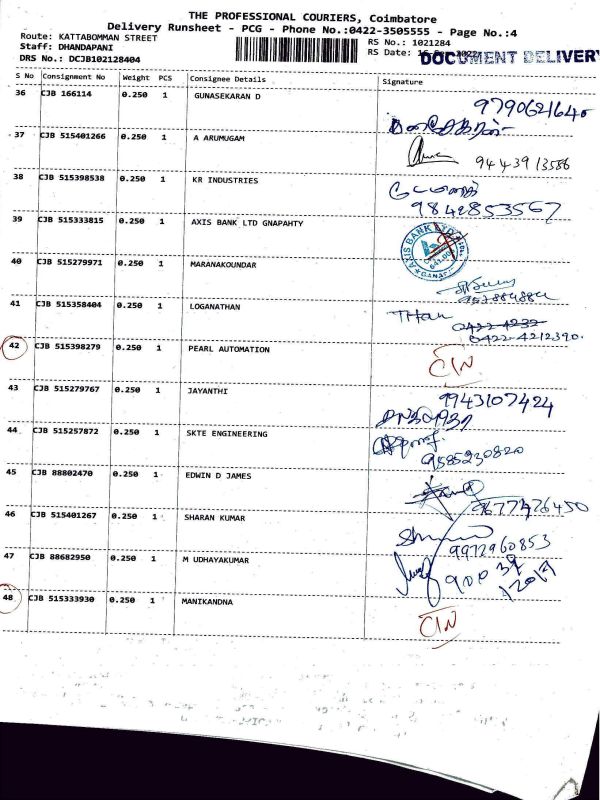 THE PROFESSIONAL COURIERS, Coimbatore
Delivery Runsheet - PCG - Phone No.:0422-3505555 - Page No.:4
Route: KATTABOMMAN STREET
Staff: DHANDAPANI
DRS No.: DCJB102128404
RS No.: 1021284
RS Date:
DOCUMENT DELIVERY
S No Consignment No Weight PCS Consignee Details Signature
36 CJB 166114 0.250 1 GUNASEKARAN D
9790621640
37 CJB 515401266 0.250 1 A ARUMUGAM
9443913586
38 CJB 515398538 0.250 1 KR INDUSTRIES
9842853567
39 CJB 515333815 0.250 1 AXIS BANK LTD GNAPAHTY
AXIS BANK LTD
40 CJB 515279971 0.250 1 MARANAKOUNDAR
41 CJB 515358404 0.250 1 LOGANATHAN
0422-4232
0422-4212390.
42 CJB 515398279 0.250 1 PEARL AUTOMATION
CIN
43 CJB 515279767 0.250 1 JAYANTHI
9943107424
44 CJB 515257872 0.250 1 SKTE ENGINEERING
9585230820
45 CJB 88802470 0.250 1 EDWIN D JAMES
9677476450
46 CJB 515401267 0.250 1 SHARAN KUMAR
9972960853
47 CJB 88682950 0.250 1 M UDHAYAKUMAR
48 CJB 515333930 0.250 1 MANIKANDNA
CIN